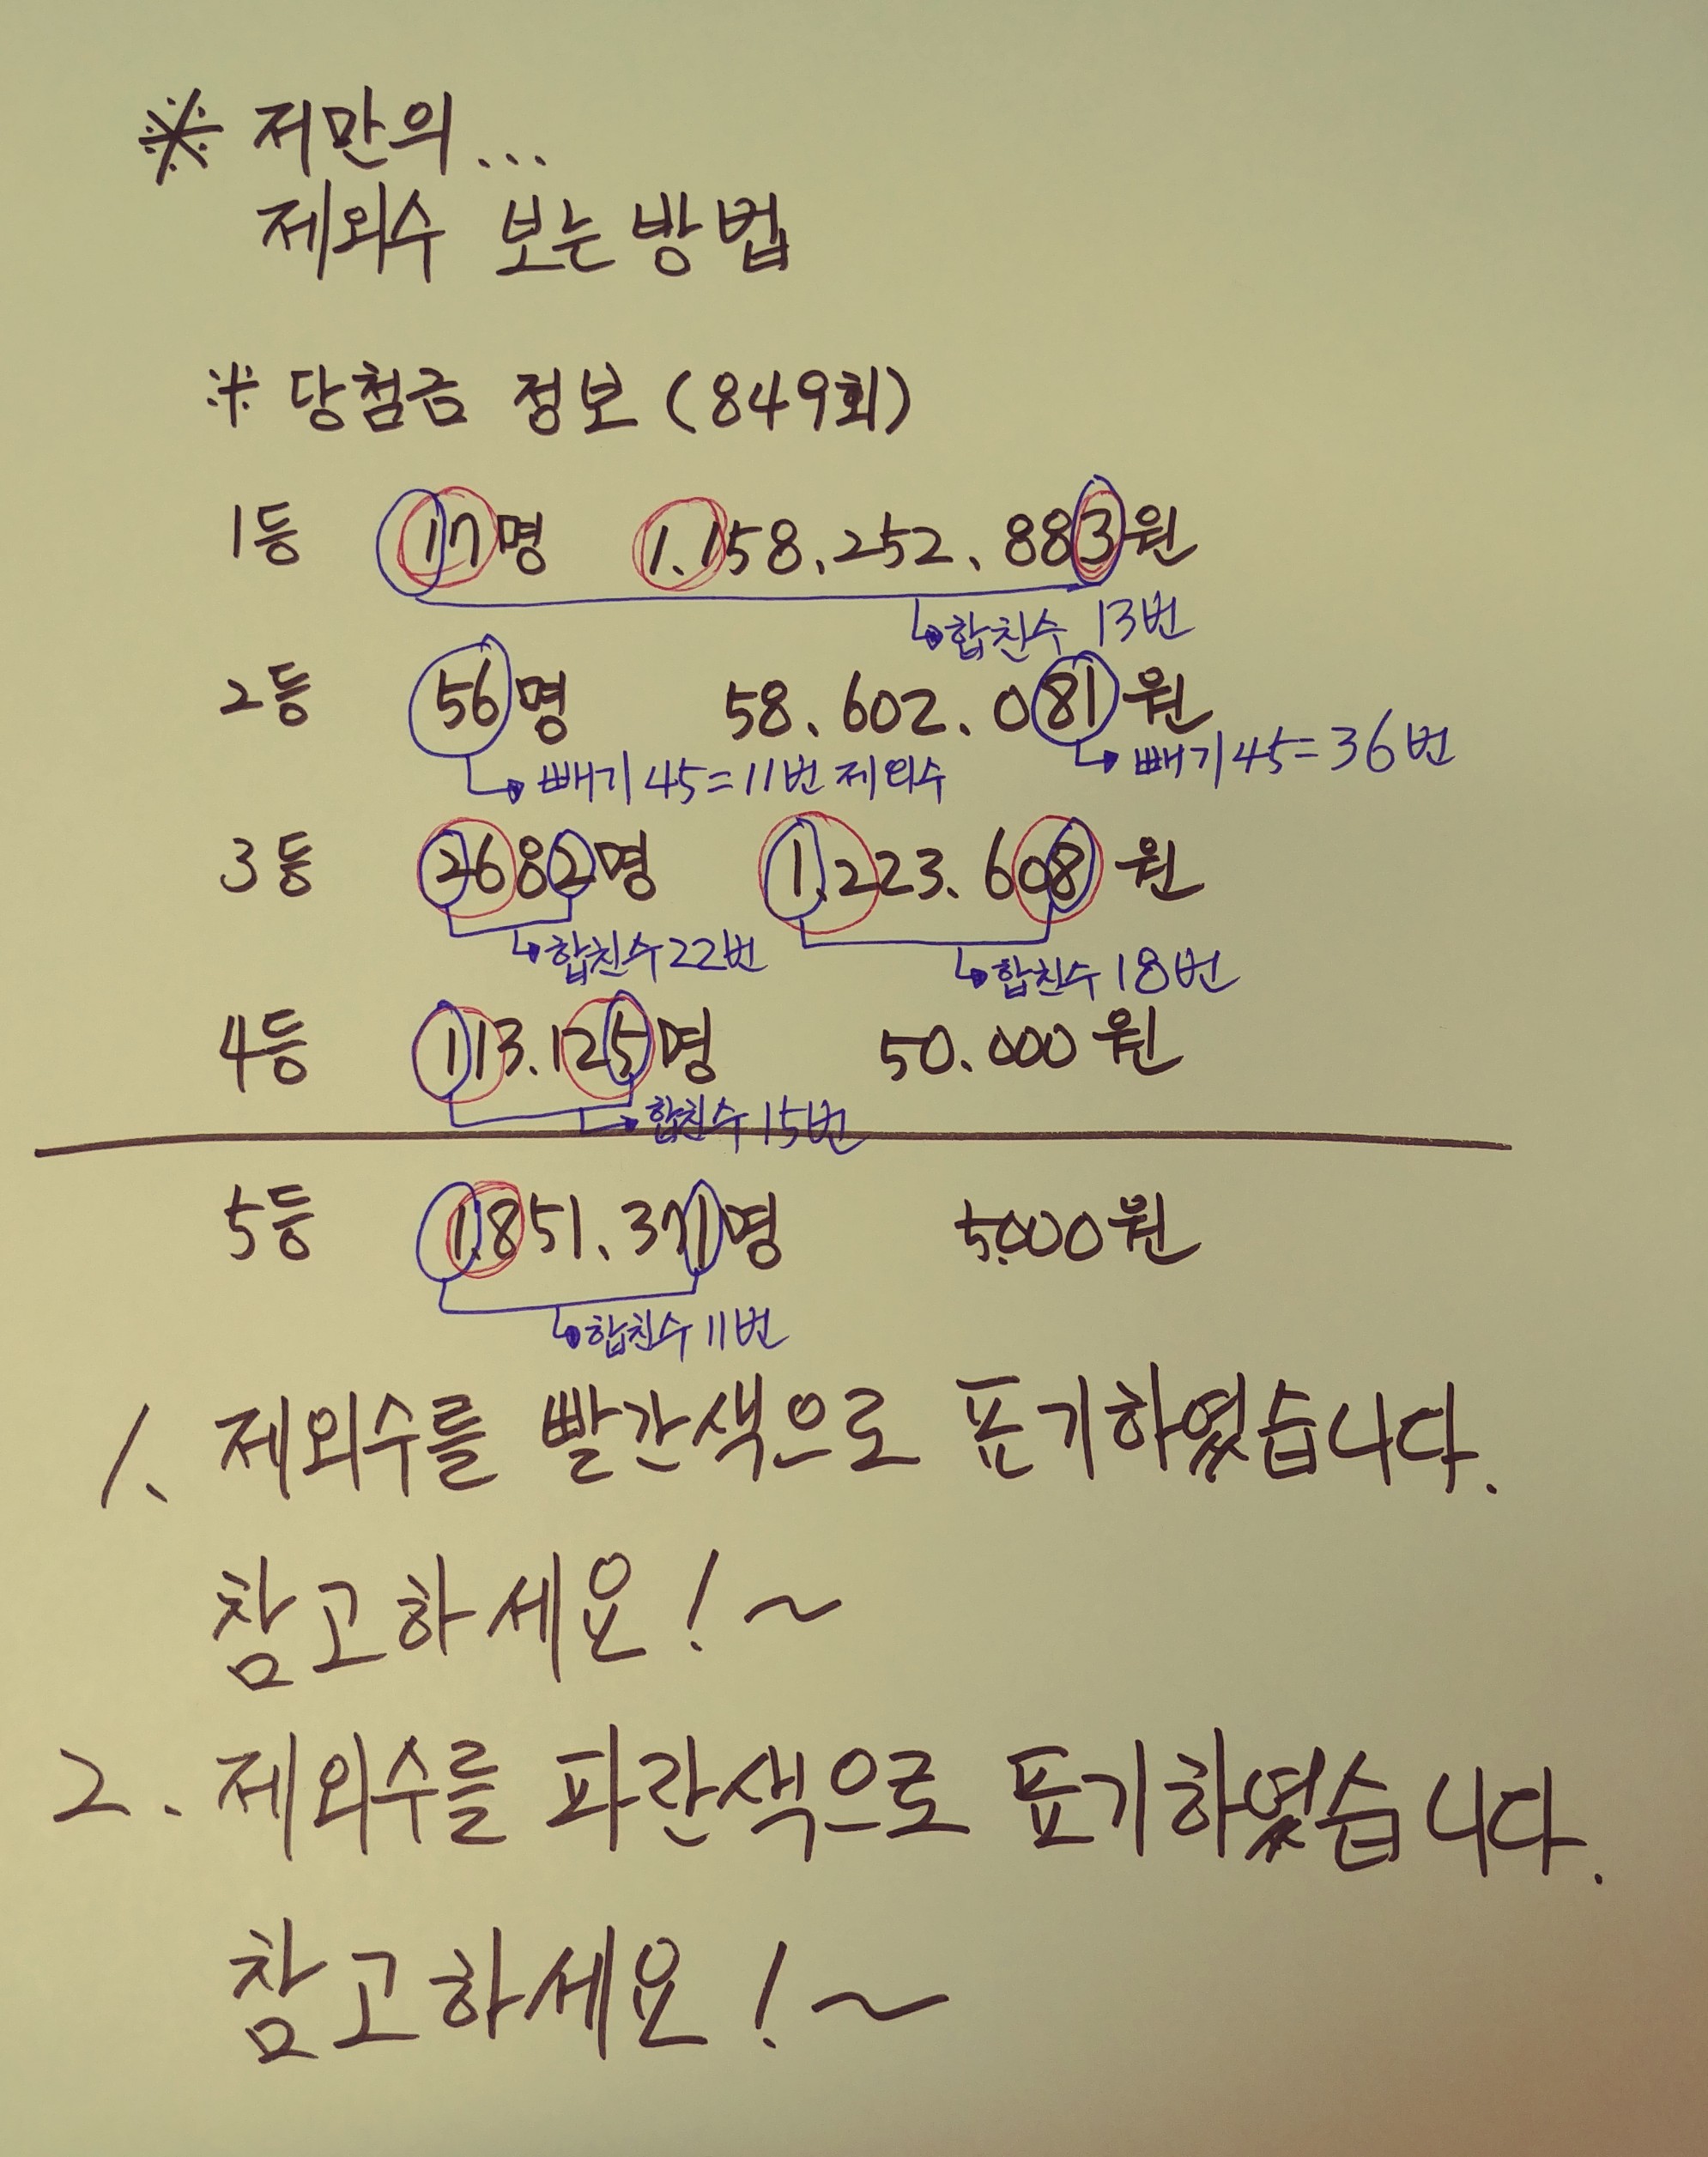 ※ 저만의...
제외수 보는 방법
※ 당첨금 정보 (849회)
1등 17명 1.158.252.883원
↳합친수 13번
2등 56명 58.602.081원
↳빼기45=11번 제외수 ↳빼기45=36번
3등 2682명 1.223.608원
↳합친수 22번 ↳합친수 18번
4등 113.125명 50.000원
↳합친수 15번
5등 1.851.371명 5.000원
↳합친수 11번
1. 제외수를 빨간색으로 표기하였습니다.
참고하세요!~
2. 제외수를 파란색으로 표기하였습니다.
참고하세요!~